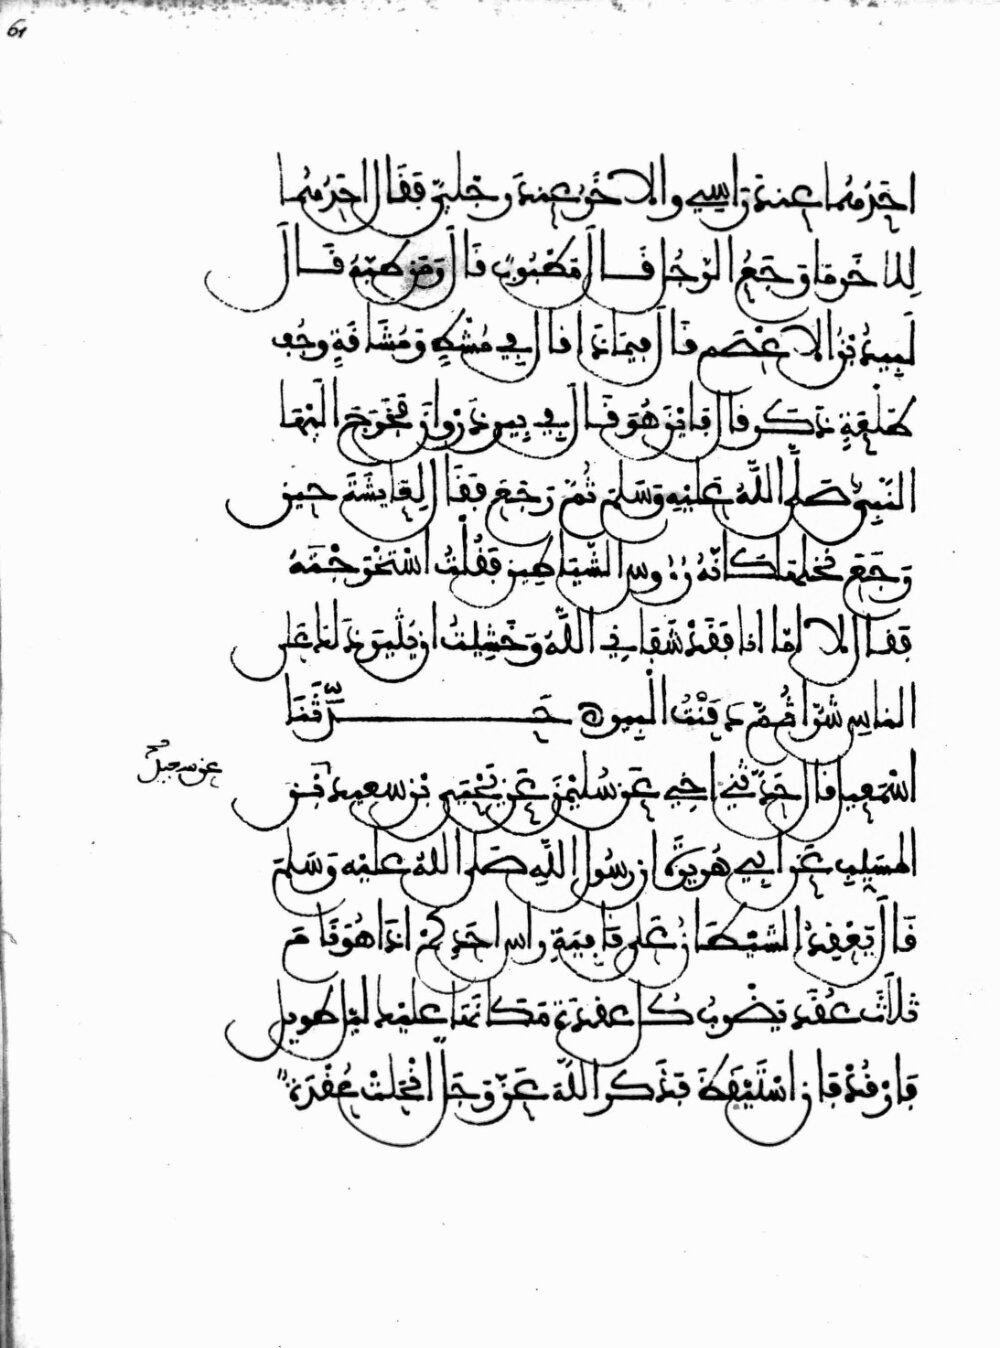 61
احدهما عند راسي والاخر عند رجلي فقال احدهما
للاخر ما وجع الرجل قال مطبوب قال ومن طبه قال
لبيد بن الاعصم قال فيما ذا قال في مشط ومشاقة وجف
طلعة ذكر قال فاين هو قال في بير ذروان فخرج اليها
النبي صلى الله عليه وسلم ثم رجع فقال لعايشة حين
رجع نخلها كانه رءوس الشياطين فقلت استخرجته
فقال لا اما انا فقد شفاني الله وخشيت ان يثير ذلك على
الناس شرا ثم دفنت البير حدثنا
اسمعيل قال حدثني اخي عن سليمن عن يحيى بن سعيد بن
المسيب عن ابي هريرة ان رسول الله صلى الله عليه وسلم
قال يعقد الشيطان على قافية راس احدكم اذا هو نام
ثلاث عقد يضرب كل عقدة مكانها عليك ليل طويل
فارقد فان استيقظ فذكر الله عز وجل انحلت عقدة
عن سعيد